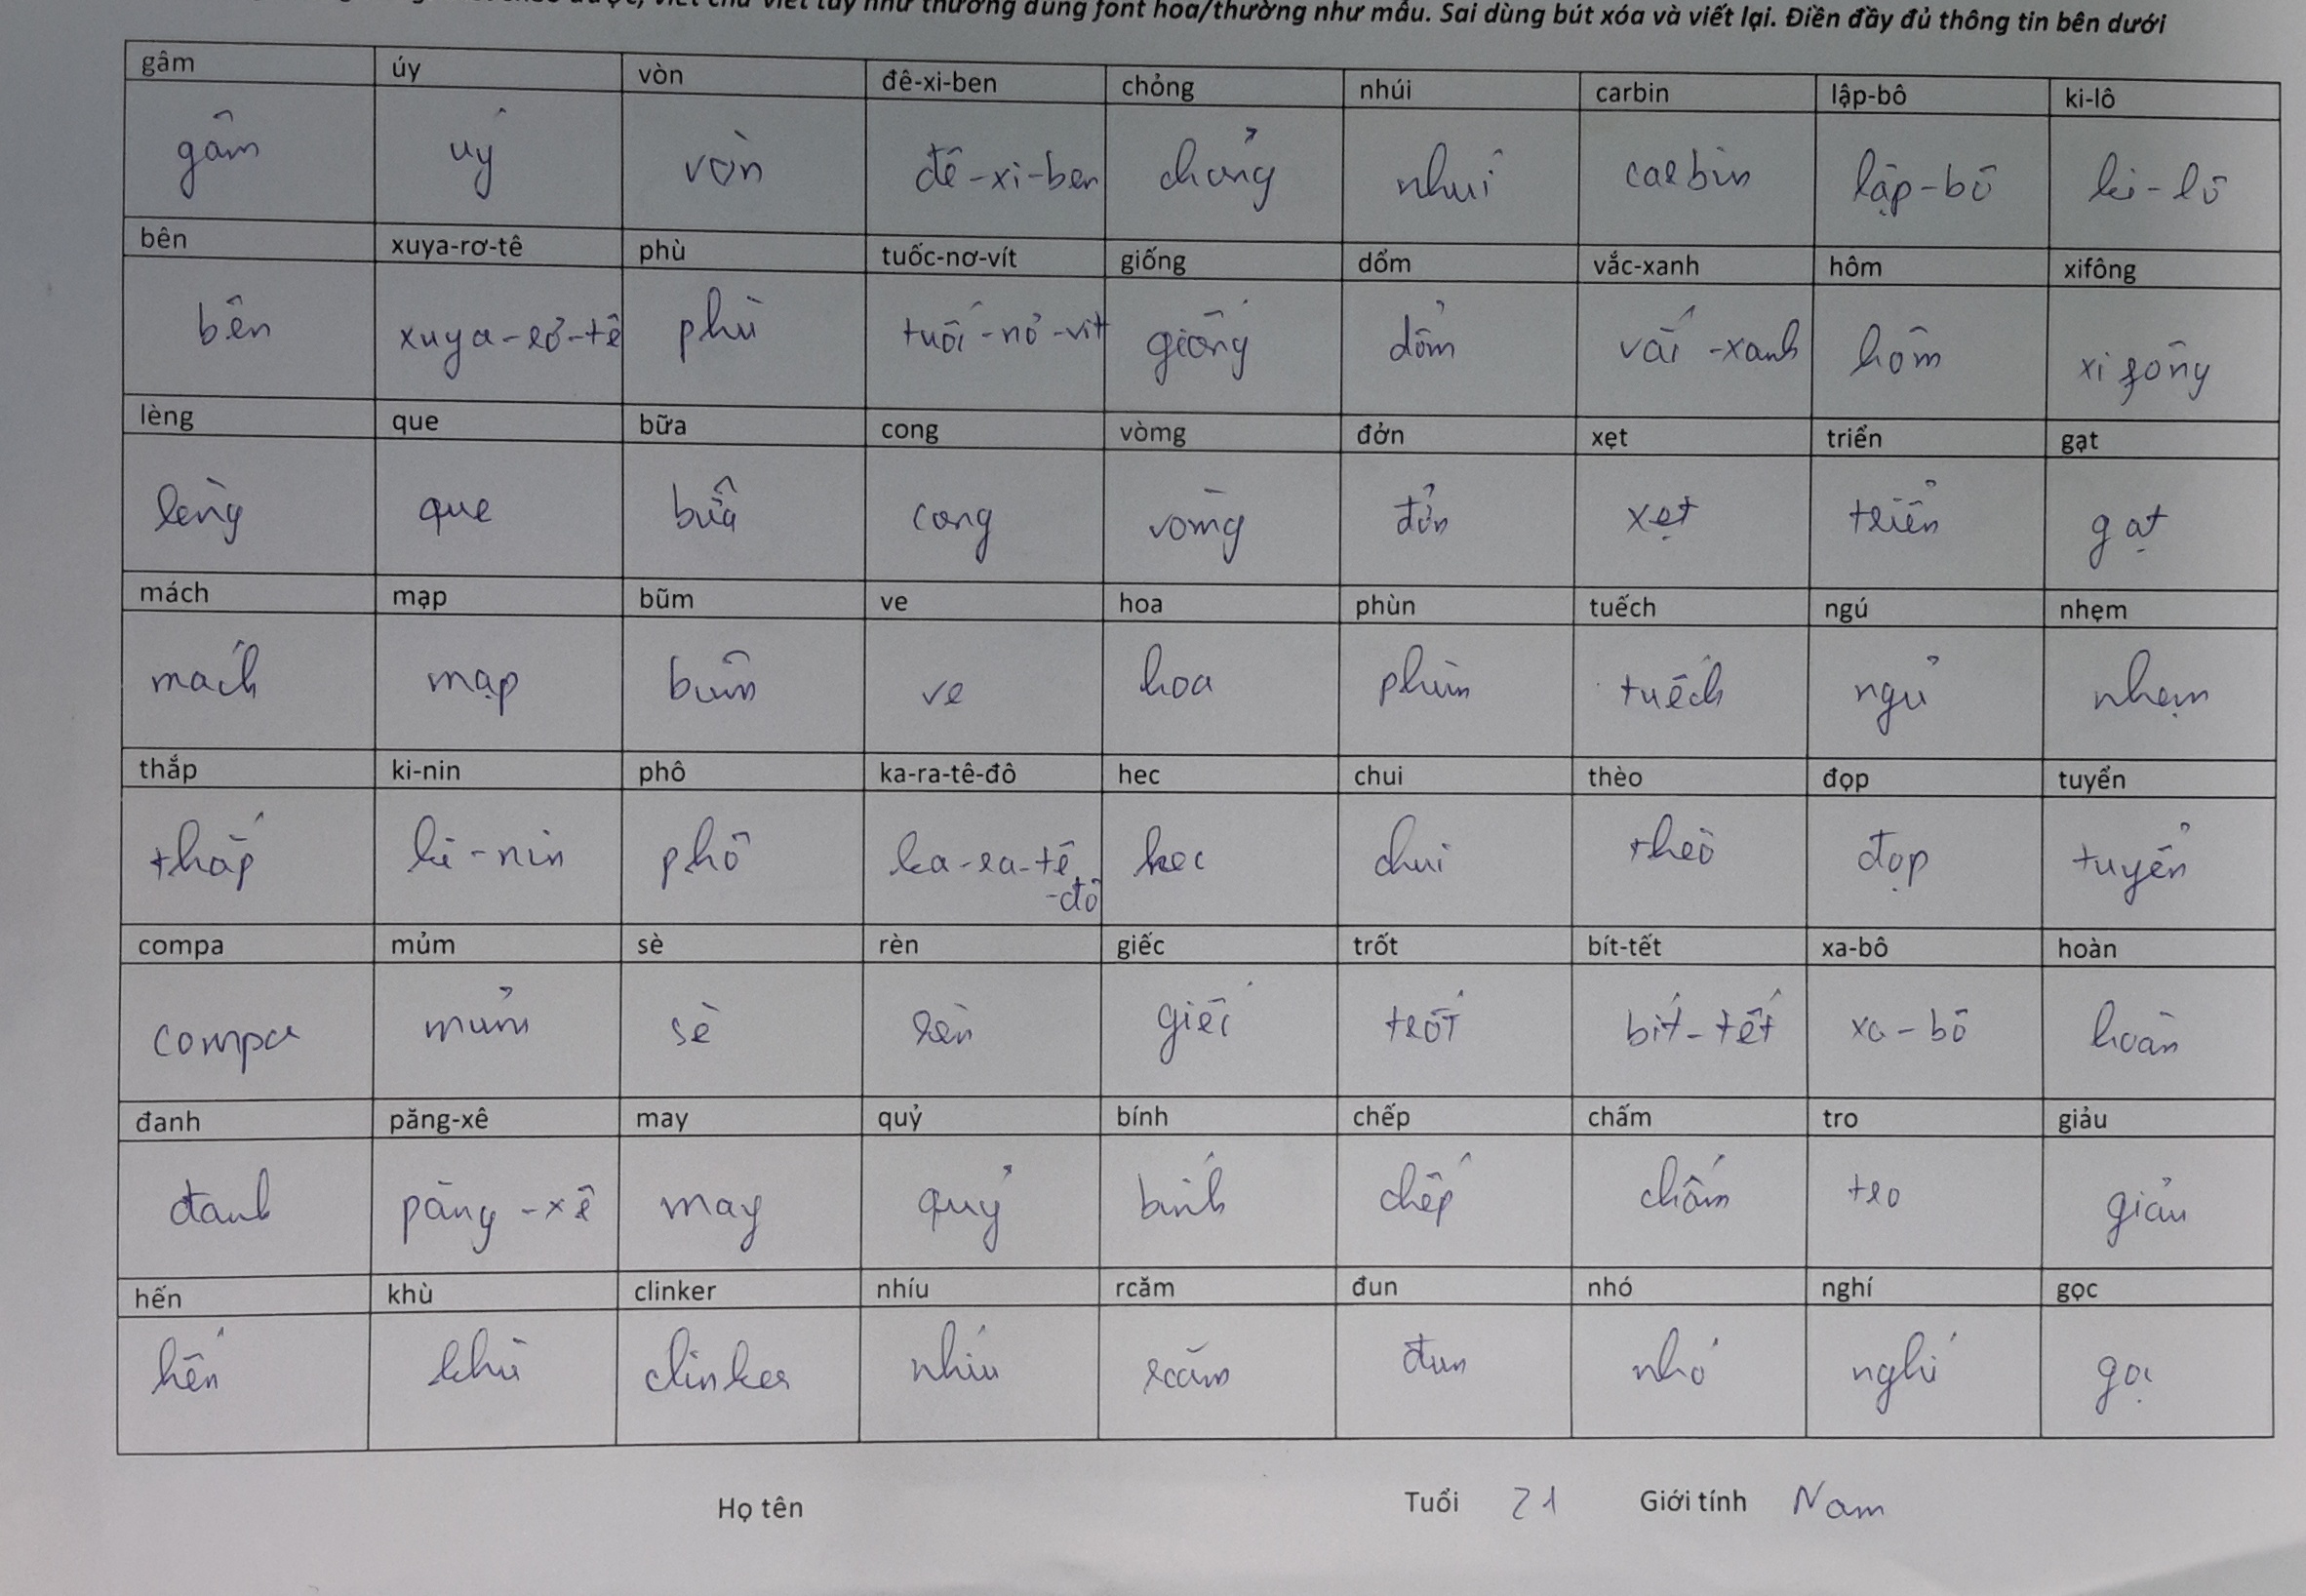 như thường dùng font hoa/thường như mẫu. Sai dùng bút xóa và viết lại. Điền đầy đủ thông tin bên dưới
gâm úy vòn đê-xi-ben chỏng nhúi carbin lập-bô ki-lô
gâm úy vòn đê-xi-ben chỏng nhúi carbin lập-bô ki-lô
bên xuya-rơ-tê phù tuốc-nơ-vít giống dổm vắc-xanh hôm xifông
bên xuya-rơ-tê phù tuốc-nơ-vít giống dổm vắc-xanh hôm xifông
lèng que bữa cong vòmg đởn xẹt triển gạt
lèng que bữa cong vòmg đởn xẹt triển gạt
mách mạp bũm ve hoa phùn tuếch ngú nhẹm
mách mạp bũm ve hoa phùn tuếch ngủ nhẹm
thắp ki-nin phô ka-ra-tê-đô hec chui thèo đọp tuyển
thắp ki-nin phô ka-ra-tê-đô hec chui thèo đọp tuyển
compa mủm sè rèn giếc trốt bít-tết xa-bô hoàn
compa mủm sè rèn giếc trốt bít-tết xa-bô hoàn
đanh păng-xê may quỷ bính chếp chấm tro giảu
đanh păng-xê may quỷ bính chếp chấm tro giảu
hến khù clinker nhíu rcăm đun nhó nghí gọc
hến khù clinker nhíu rcăm đun nhó nghí gọc
Họ tên Tuổi 21 Giới tính Nam